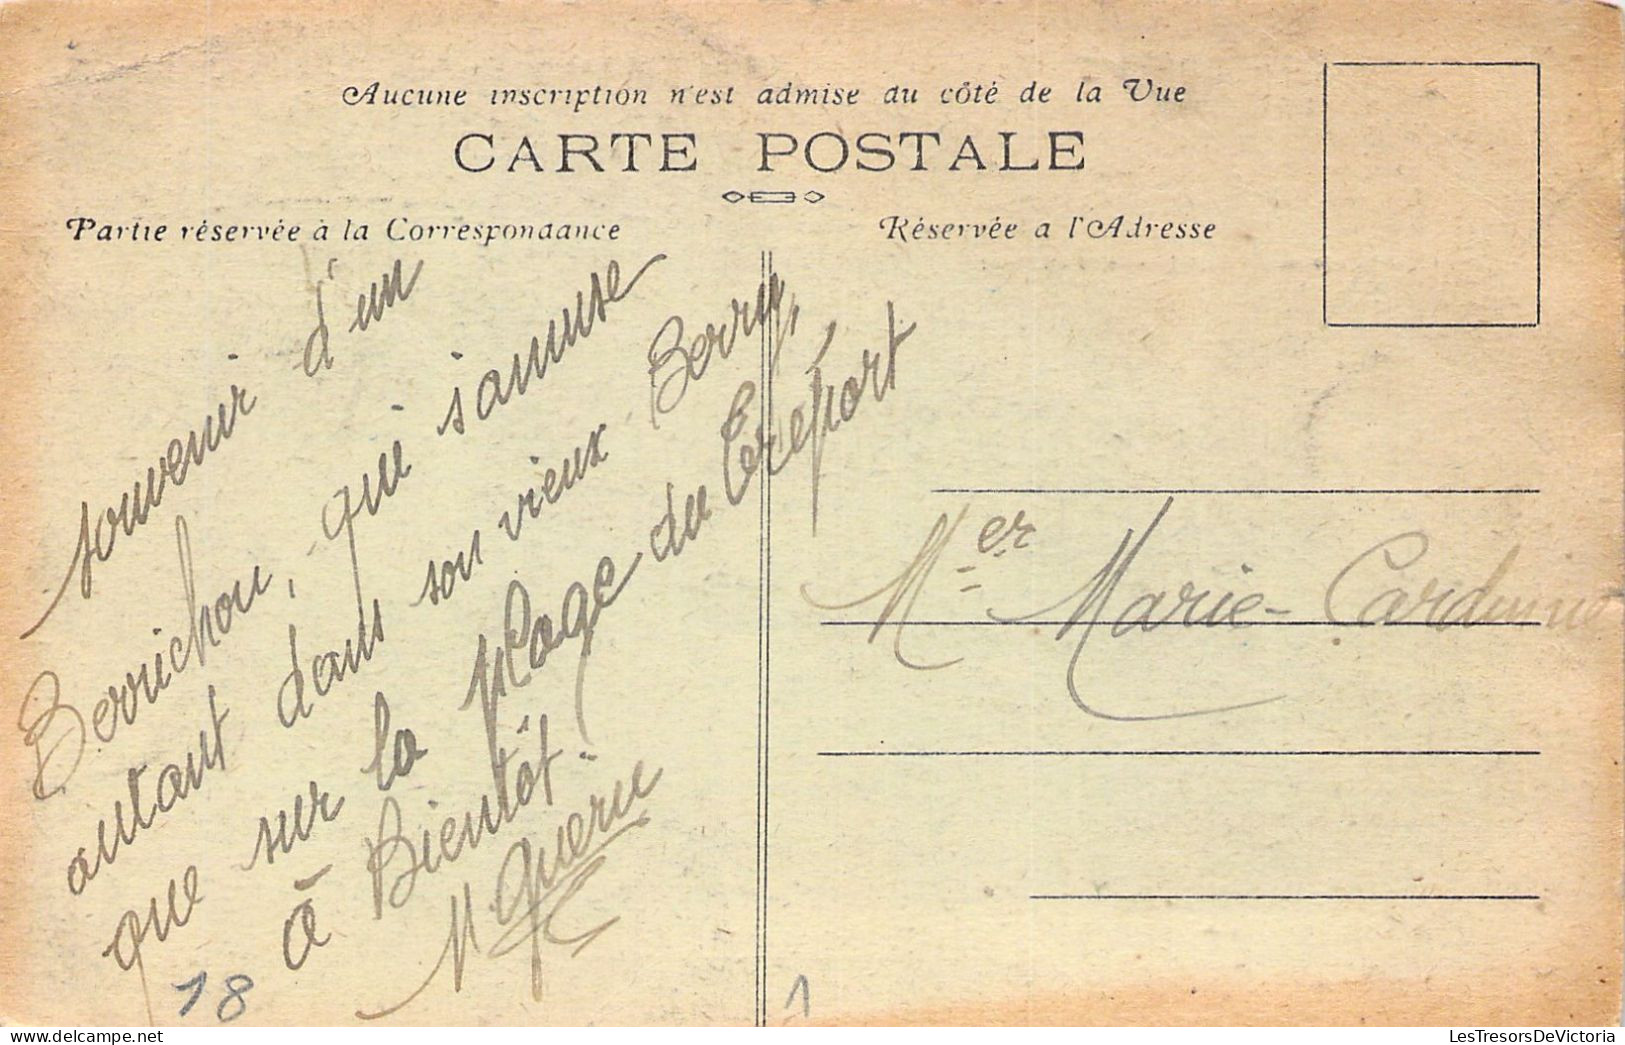 Aucune inscription n'est admise au côté de la Vue
CARTE POSTALE
Partie réservée à la Correspondance
Réservée a l'Adresse
souvenir d'un
Berrichon, qui s'amuse
autant dans son vieux Berry,
que sur la Plage du Tréport
à Bientôt.
M
Mer Marie-Cardinne
18
1
LesTresorsDeVictoria